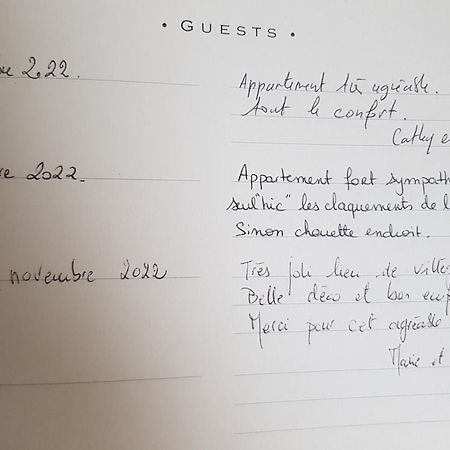 • GUESTS •
re 2022.
Appartement très agréable.
tout le confort.
Cathy e
re 2022.
Appartement fort sympath
seul "hic" les claquements de l
Sinon chouette endroit.
novembre 2022
Très joli lieu de ville
Belle déco et bon emp
Merci pour cet agréable
Marie et